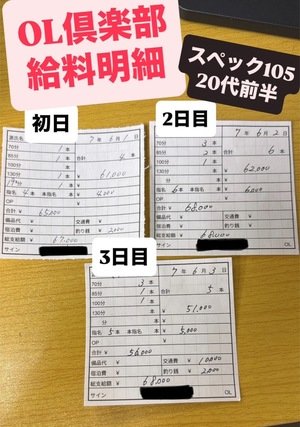 OL倶楽部
給料明細
スペック105
20代前半
初日
派出名 7年6月1日
70分 1本 合計 4本
85分 1本
100分 1本 ¥ 61,000
130分 1本
指名 4本 本指名 本 ¥ 4,000
OP ¥
合計 ¥ 65,000
備品代 ¥ 交通費 ¥
宿泊費 ¥ 釣り銭 ¥ 2000
総支給額 ¥ 67,000
サイン
2日目
7年6月2日
70分 3本 合計 6本
85分 2本
100分 1本 ¥ 62,000
130分 本
指名 6本 本指名 本 ¥
OP ¥
合計 ¥ 68,000
備品代 ¥ 交通費 ¥
宿泊費 ¥ 釣り銭 ¥
総支給額 ¥ 68,000
サイン OL
3日目
7年6月3日
70分 3本 合計 5本
85分 1本
100分 1本 ¥ 51,000
130分 本
指名 5本 本指名 本 ¥ 5,000
OP ¥
合計 ¥ 56,000
備品代 ¥ 交通費 ¥ 10,000
宿泊費 ¥ 釣り銭 ¥ 2,000
総支給額 ¥ 68,000
サイン OL